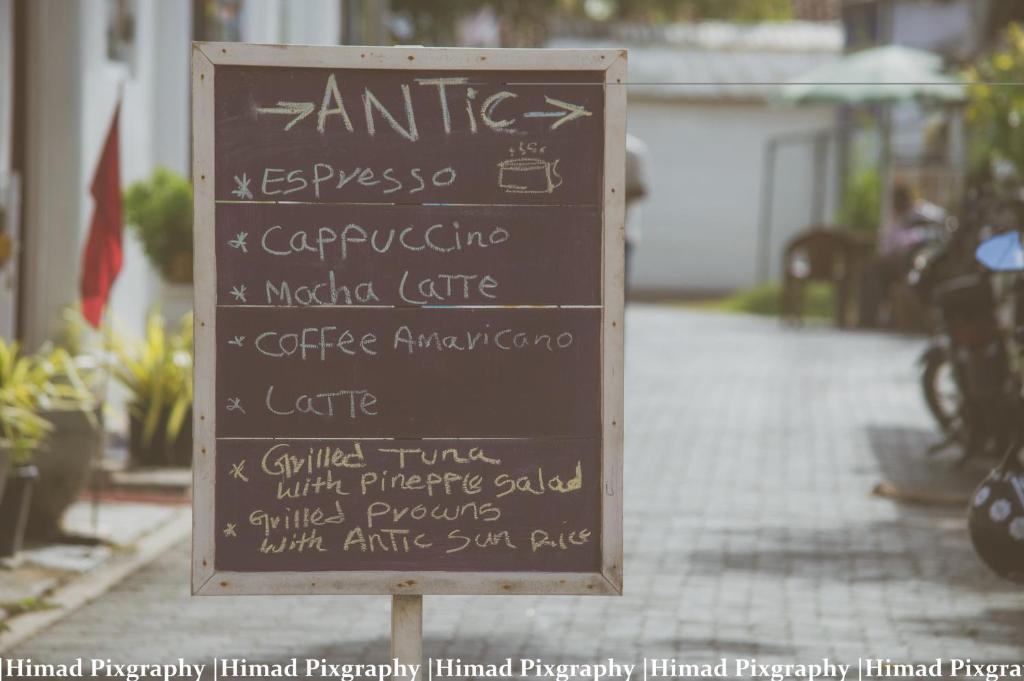 →ANTiC→
* Espresso
* Cappuccino
* Mocha Latte
* Coffee Amaricano
* Latte
* Grilled Tuna
with Pinepple salad
* Grilled Prowns
with Antic Sun Rice
|Himad Pixgraphy |Himad Pixgraphy |Himad Pixgraphy |Himad Pixgraphy |Himad Pixgra